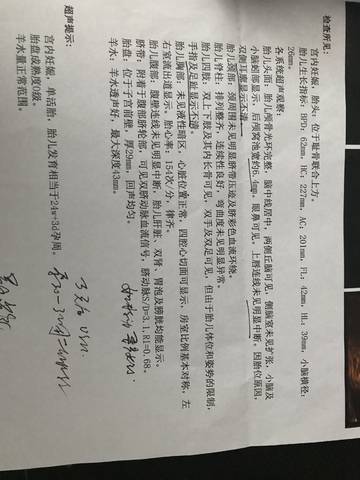 检查所见:
宫内妊娠,胎头:位于耻骨联合上方。
胎儿生长指标:BPD:62mm,HC:227mm,AC:201mm,FL:42mm,HL:39mm,小脑横径:
26mm。
各系统超声观察:
胎儿头面:胎儿颅骨光环完整,脑中线居中,两侧丘脑可见,侧脑室未见扩张,小脑及
小脑蚓部显示,后颅窝池宽约6.4mm,眼鼻可见,上唇连续未见明显中断。因胎位原因,
双侧耳廓显示不清。
胎儿颈部:颈周围未见明显脐带压迹及脐彩色血流环绕。
胎儿脊柱:排列整齐,连续性良好,弯曲度未见明显异常。
胎儿四肢:双上下肢及其内长骨可见,双手及双足可见,但由于胎儿体位和姿势的限制,
手指及足趾显示不清。
胎儿胸部:未见液性暗区,心脏位置正常,四腔心切面可显示,房室比例基本对称,左
右室流出道显示,胎心率:154次/分,律齐。
胎儿腹部:腹壁连续未见明显中断,胎儿肝脏、双肾、胃泡及膀胱均能显示。
脐带:附着于腹部脐轮部,可见双脐动脉血流信号,脐动脉S/D=3.1,RI=0.68。
胎盘:位于子宫前壁,厚29mm,回声均匀。
羊水:羊水透声好,最大深度43mm。
超声提示:
宫内妊娠,单活胎,胎儿发育相当于24w+3d孕周。
胎盘成熟度0级。
羊水量正常范围。